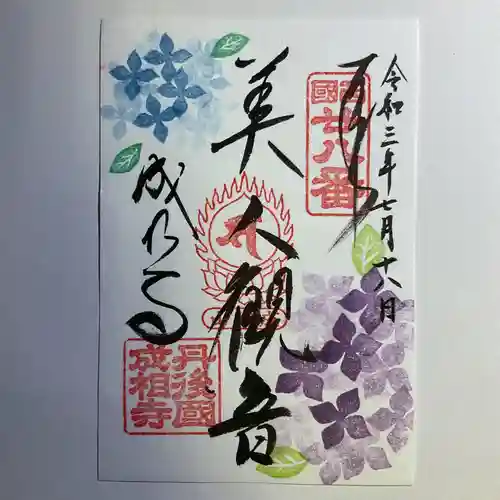 令和三年七月十六日
奉拝
西國
廿八番
美人観音
成相寺
丹後國
成相寺